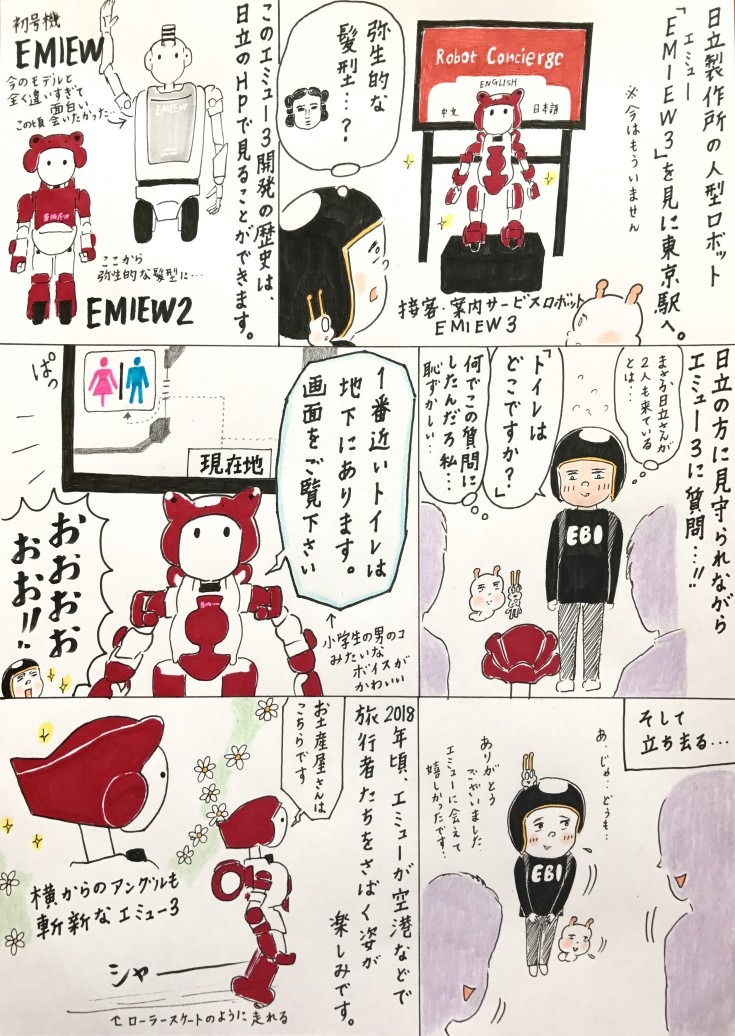 日立製作所の人型ロボット
エミュー
「EMIEW3」を見に東京駅へ。
※今はもういません
Robot Concierge
ENGLISH
中文
日本語
接客・案内サービスロボット
EMIEW3
弥生的な
髪型…?
このエミュー3開発の歴史は、
日立のHPで見ることができます。
初号機
EMIEW
今のモデルと
全く違いすぎて
面白い
この頃会いたかった…
EMIEW
ここから
弥生的な髪型に…
EMIEW2
日立の方に見守られながら
エミュー3に質問…!!
まさか日立さんが
2人も来ている
とは…
「トイレは
どこですか?」
何でこの質問に
したんだろ私…
恥ずかしい…
EBI
1番近いトイレは
地下にあります。
画面をご覧下さい
現在地
ぱっ
小学生の男のコ
みたいな
ボイスが
かわいい
おおおお
おお!!
そして
立ち去る…
あ、じゃ…どうも…
ありがとう
ございました、
エミューに会えて
嬉しかったです…
EBI
2018年頃、エミューが空港などで
旅行者たちをさばく姿が
楽しみです。
お土産屋さんは
こちらです
横からのアングルも
斬新なエミュー3
シャー
ローラースケートのように走れる